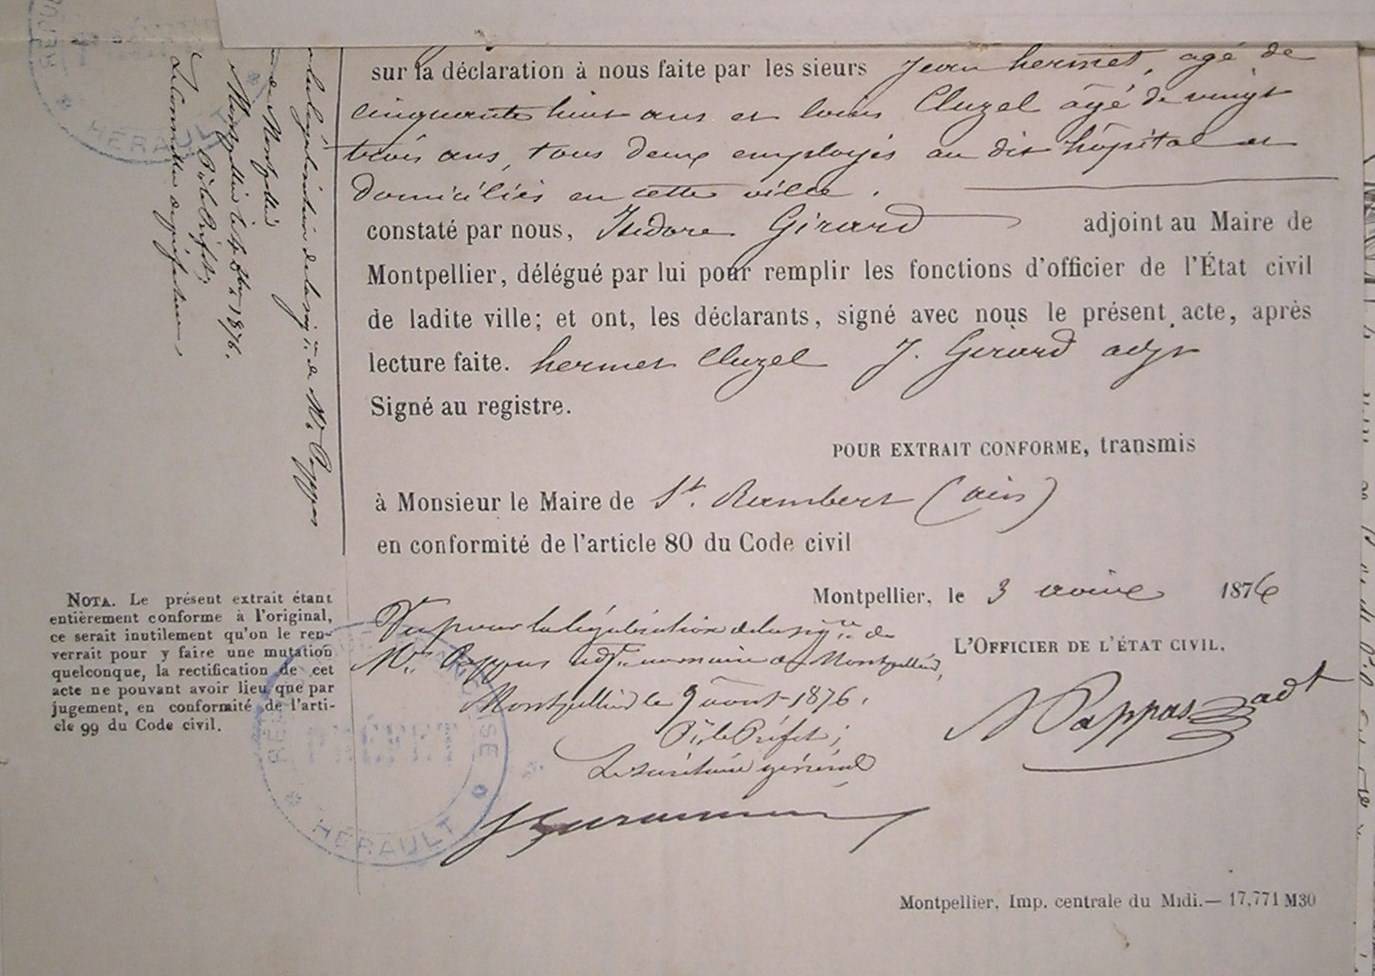 sur la déclaration à nous faite par les sieurs Jean hermet, agé de
cinquante huit ans et louis Cluzel âgé de vingt
trois ans, tous deux employés au dit hôpital et
domiciliés en cette ville.
constaté par nous, Isidore Girard adjoint au Maire de
Montpellier, délégué par lui pour remplir les fonctions d'officier de l'État civil
de ladite ville; et ont, les déclarants, signé avec nous le présent acte, après
lecture faite. hermet Cluzel J. Girard adjt
Signé au registre.
POUR EXTRAIT CONFORME, transmis
à Monsieur le Maire de St. Rambert (ain)
en conformité de l'article 80 du Code civil
Montpellier, le 3 1876
L'OFFICIER DE L'ÉTAT CIVIL.
Pappas adt
Vu pour la législation de la sigre de
Mr. Pappas adjt au maire de Montpellier,
Montpellier le 9 aout 1876.
Pr. le Préfet;
Le secrétaire général
NOTA. Le présent extrait étant
entièrement conforme à l'original,
ce serait inutilement qu'on le ren-
verrait pour y faire une mutation
quelconque, la rectification de cet
acte ne pouvant avoir lieu que par
jugement, en conformité de l'arti-
cle 99 du Code civil.
RÉPUBLIQUE FRANÇAISE
HÉRAULT
HÉRAULT
de la sigre de Mr. Pappas
de Montpellier
Montpellier le 1876.
Pr. le Préfet,
Montpellier, Imp. centrale du Midi.— 17,771 M30